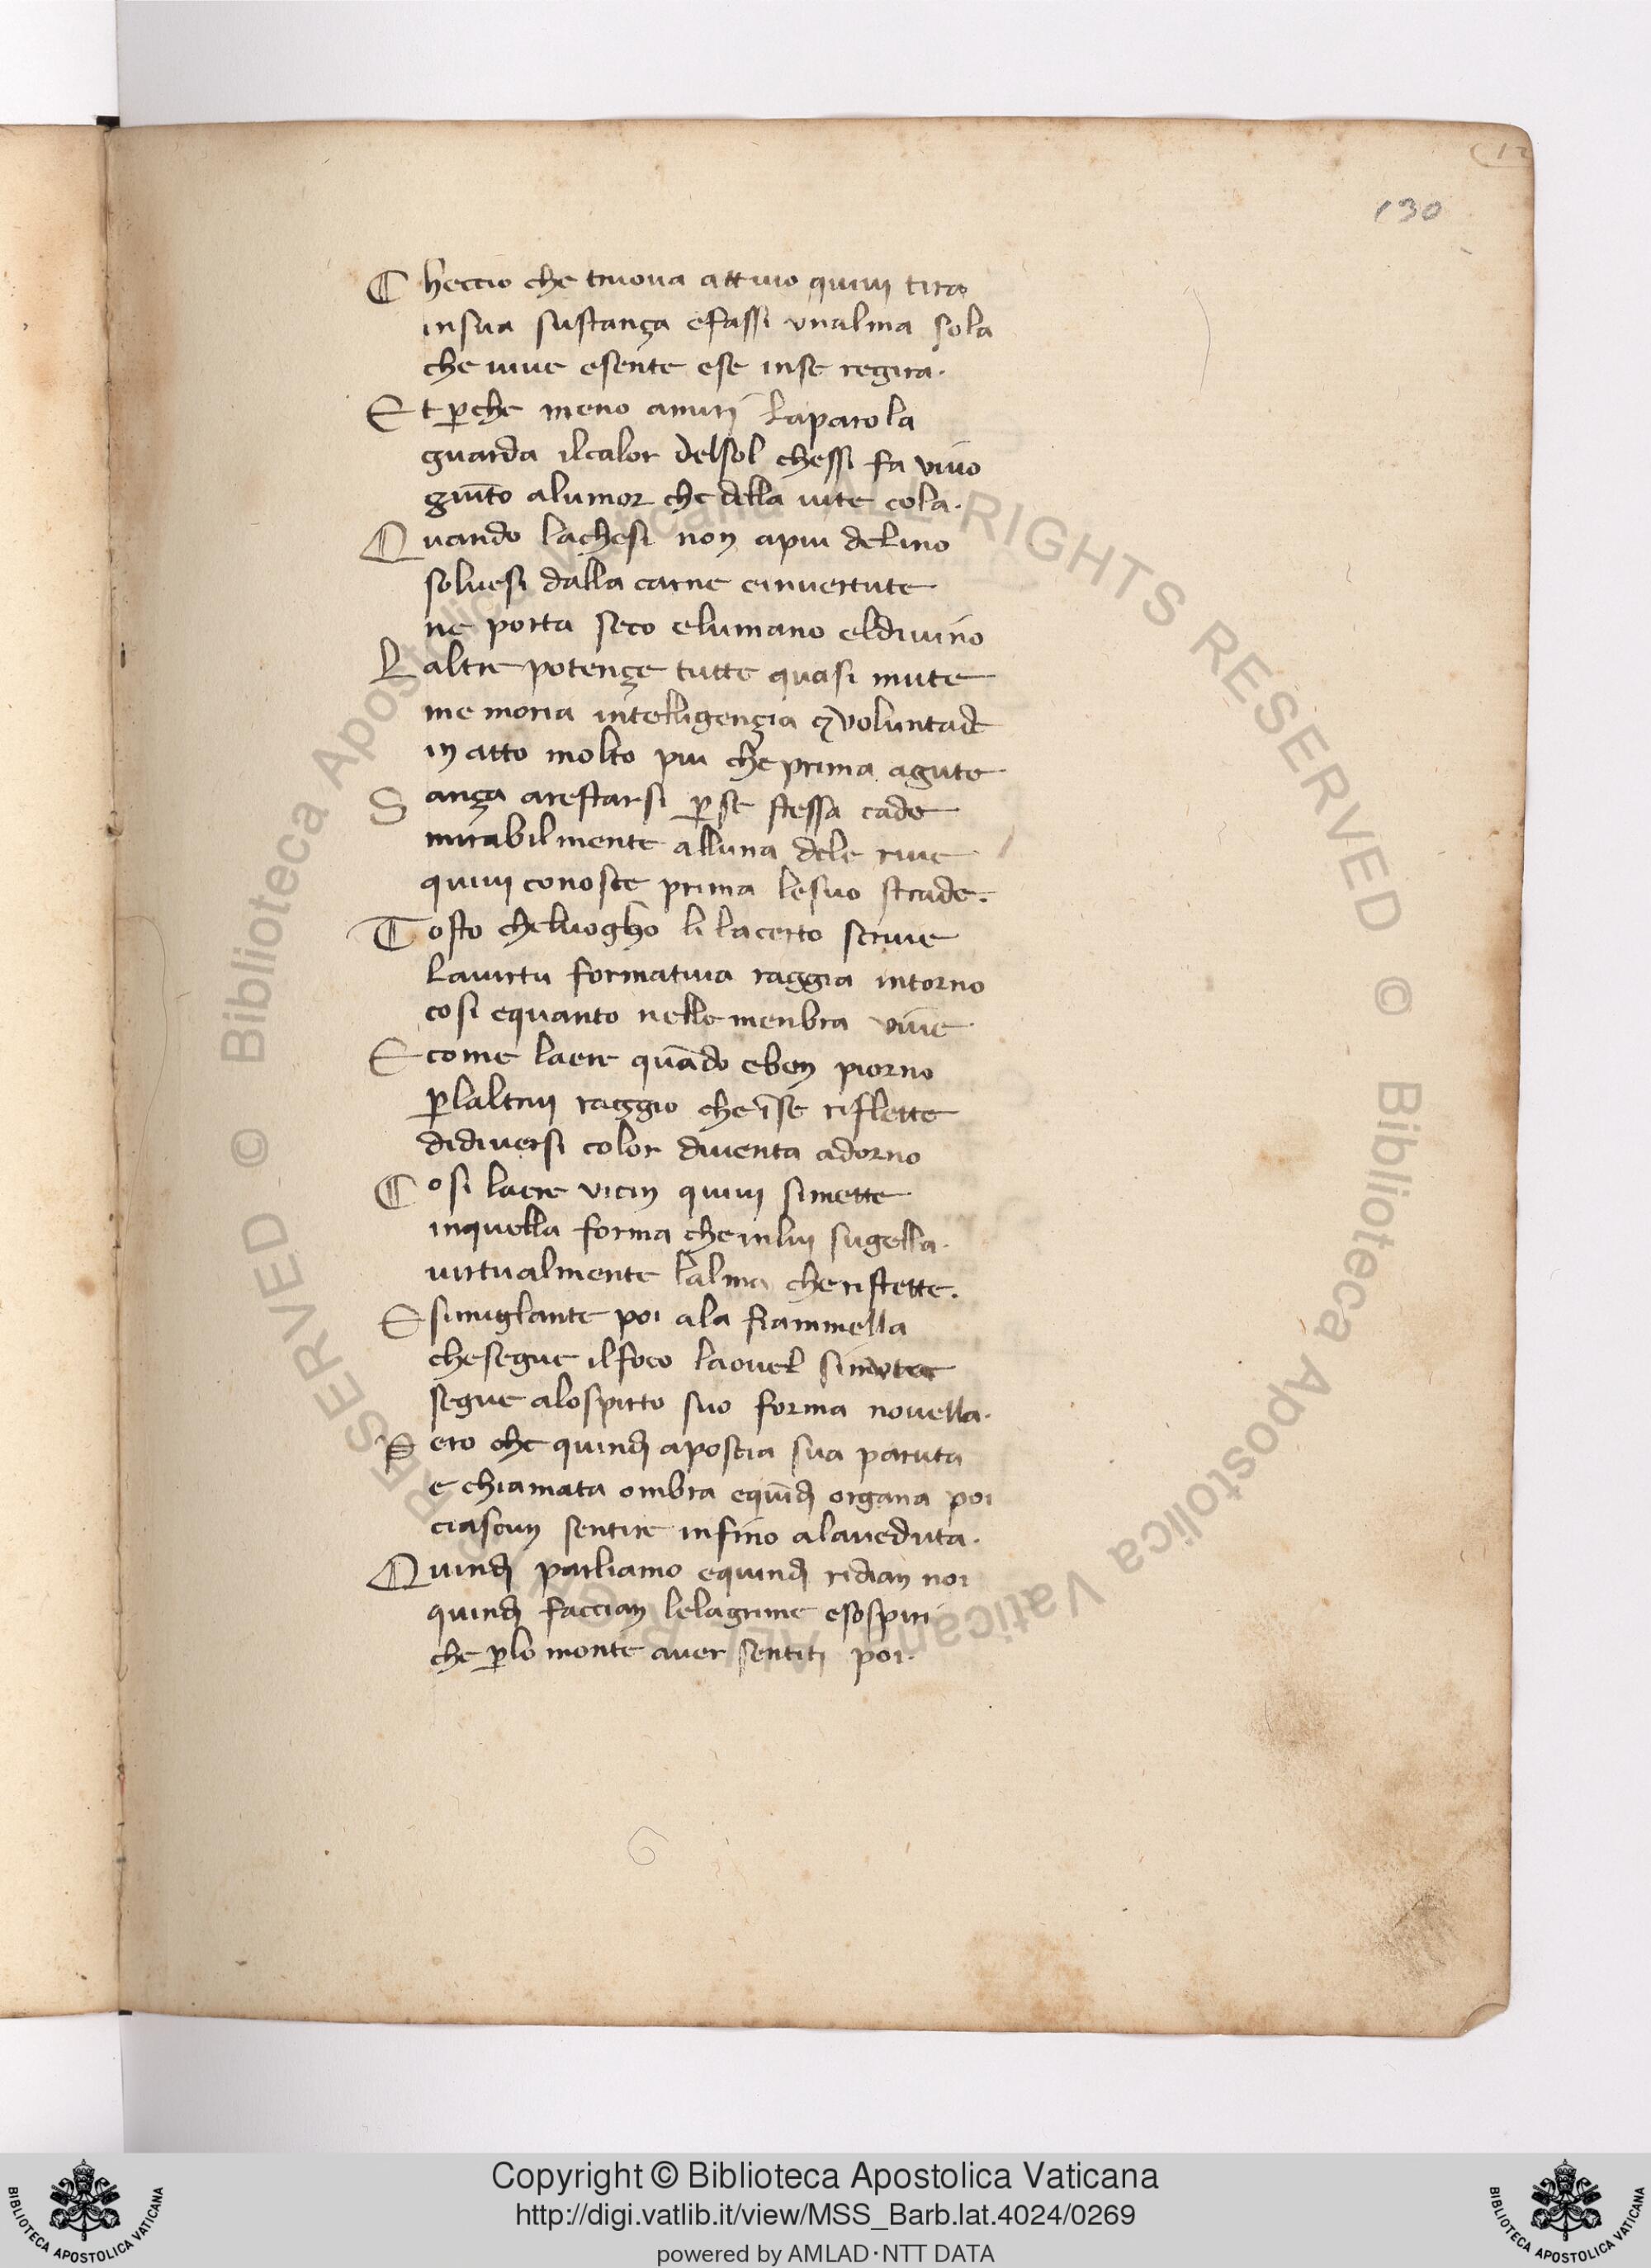 130
C heccio che truova attiuo quiui tira
in sua sustança efassi vnalma sola
che uiue esente ese inse regira.
E t p̲che meno amirj laparola
guarda ilcalor delsol chessi fa viuo
giũto alumor che della uite cola.
Q uando lachesi non apiu delino
soluesi dalla carne einuertute
ne porta seco elumano eldiuino
L altre potençe tutte quasi mute
memoria intelligençia ⁊ voluntade
in atto molto piu che prima agute
S ança arestarsi p̲se stessa cade
mirabilmente alluna dele riue
quiui conosce prima lesuo strade.
T osto cheluogho li lacerto scriue
lauirtu formatiua raggia intorno
cosi equanto nelle menbra viue
E come laere quãdo eben piorno
p̲laltrui raggio che ĩse riflette
didiuersi color diuenta adorno
C osi laere vicin quiui simette
inquella forma che inlui sugella.
uirtualmente lalma che ristette.
E simiglante poi ala fiammella
chesegue ilfoco laouel simuta
segue alospirto suo forma nouella.
P ero che quindj aposcia sua paruta
e chiamata ombra equĩdj organa poi
ciascun sentire infino alaueduta.
Q uindj parliamo equindj ridian noi
quindj faccian lelagrime esospiri
che p̲lo monte auer sentiti poi.
Biblioteca Apostolica Vaticana ALL RIGHTS RESERVED ©
Biblioteca Apostolica Vaticana ALL RIGHTS RESERVED ©
Copyright © Biblioteca Apostolica Vaticana
http://digi.vatlib.it/view/MSS_Barb.lat.4024/0269
powered by AMLAD·NTT DATA
BIBLIOTECA APOSTOLICA VATICANA
BIBLIOTECA APOSTOLICA VATICANA